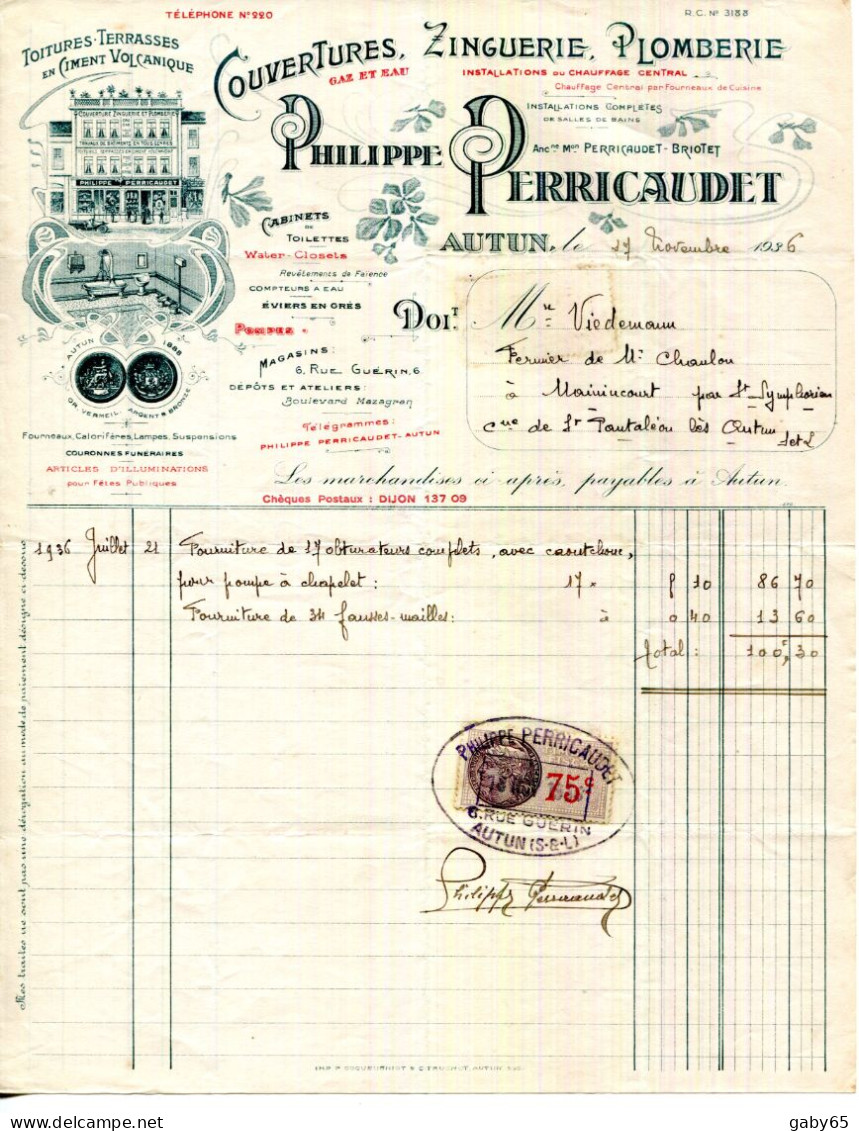 TÉLÉPHONE Nº 220
R.C. Nº 3188
TOITURES-TERRASSES
EN CIMENT VOLCANIQUE
COUVERTURES, ZINGUERIE, PLOMBERIE
GAZ ET EAU
INSTALLATIONS DU CHAUFFAGE CENTRAL
Chauffage Central par Fourneaux de Cuisine
INSTALLATIONS COMPLÈTES
DE SALLES DE BAINS
COUVERTURE ZINGUERIE ET PLOMBERIE
TRAVAUX DE BATIMENTS EN TOUS GENRES
PHILIPPE PERRICAUDET
PHILIPPE PERRICAUDET
Ancne Mon PERRICAUDET-BRIOTET
AUTUN, le 27 Novembre 1936
CABINETS
DE
TOILETTES
Water-Closets
Revêtements de Faïence
COMPTEURS A EAU
ÉVIERS EN GRÈS
POMPES
DOIT Mr Viedemann
Fermier de Mr Chaulon
à Mainincourt par St Symphorien
cne de St Pantaléon lès Autun
S et L
MAGASINS:
6, RUE GUÉRIN, 6
DÉPÔTS ET ATELIERS:
Boulevard Mazagran
Télégrammes:
PHILIPPE PERRICAUDET-AUTUN
AUTUN 1888
OR, VERMEIL, ARGENT & BRONZE
Fourneaux, Calorifères, Lampes, Suspensions
COURONNES FUNÉRAIRES
ARTICLES D'ILLUMINATIONS
pour Fêtes Publiques
Les marchandises ci-après, payables à Autun.
Chèques Postaux : DIJON 137 09
1936 Juillet 21 Fourniture de 17 obturateurs complets, avec caoutchouc,
pour pompe à chapelet : 17 × 5 10 86 70
Fourniture de 34 fausses-mailles : à 0 40 13 60
Total : 100f,30
Mes traites ne sont pas une dérogation au mode de paiement désigné ci-dessus
PHILIPPE PERRICAUDET
75c
6, RUE GUERIN
AUTUN (S-&-L)
Philippe Perricaudet
gaby65